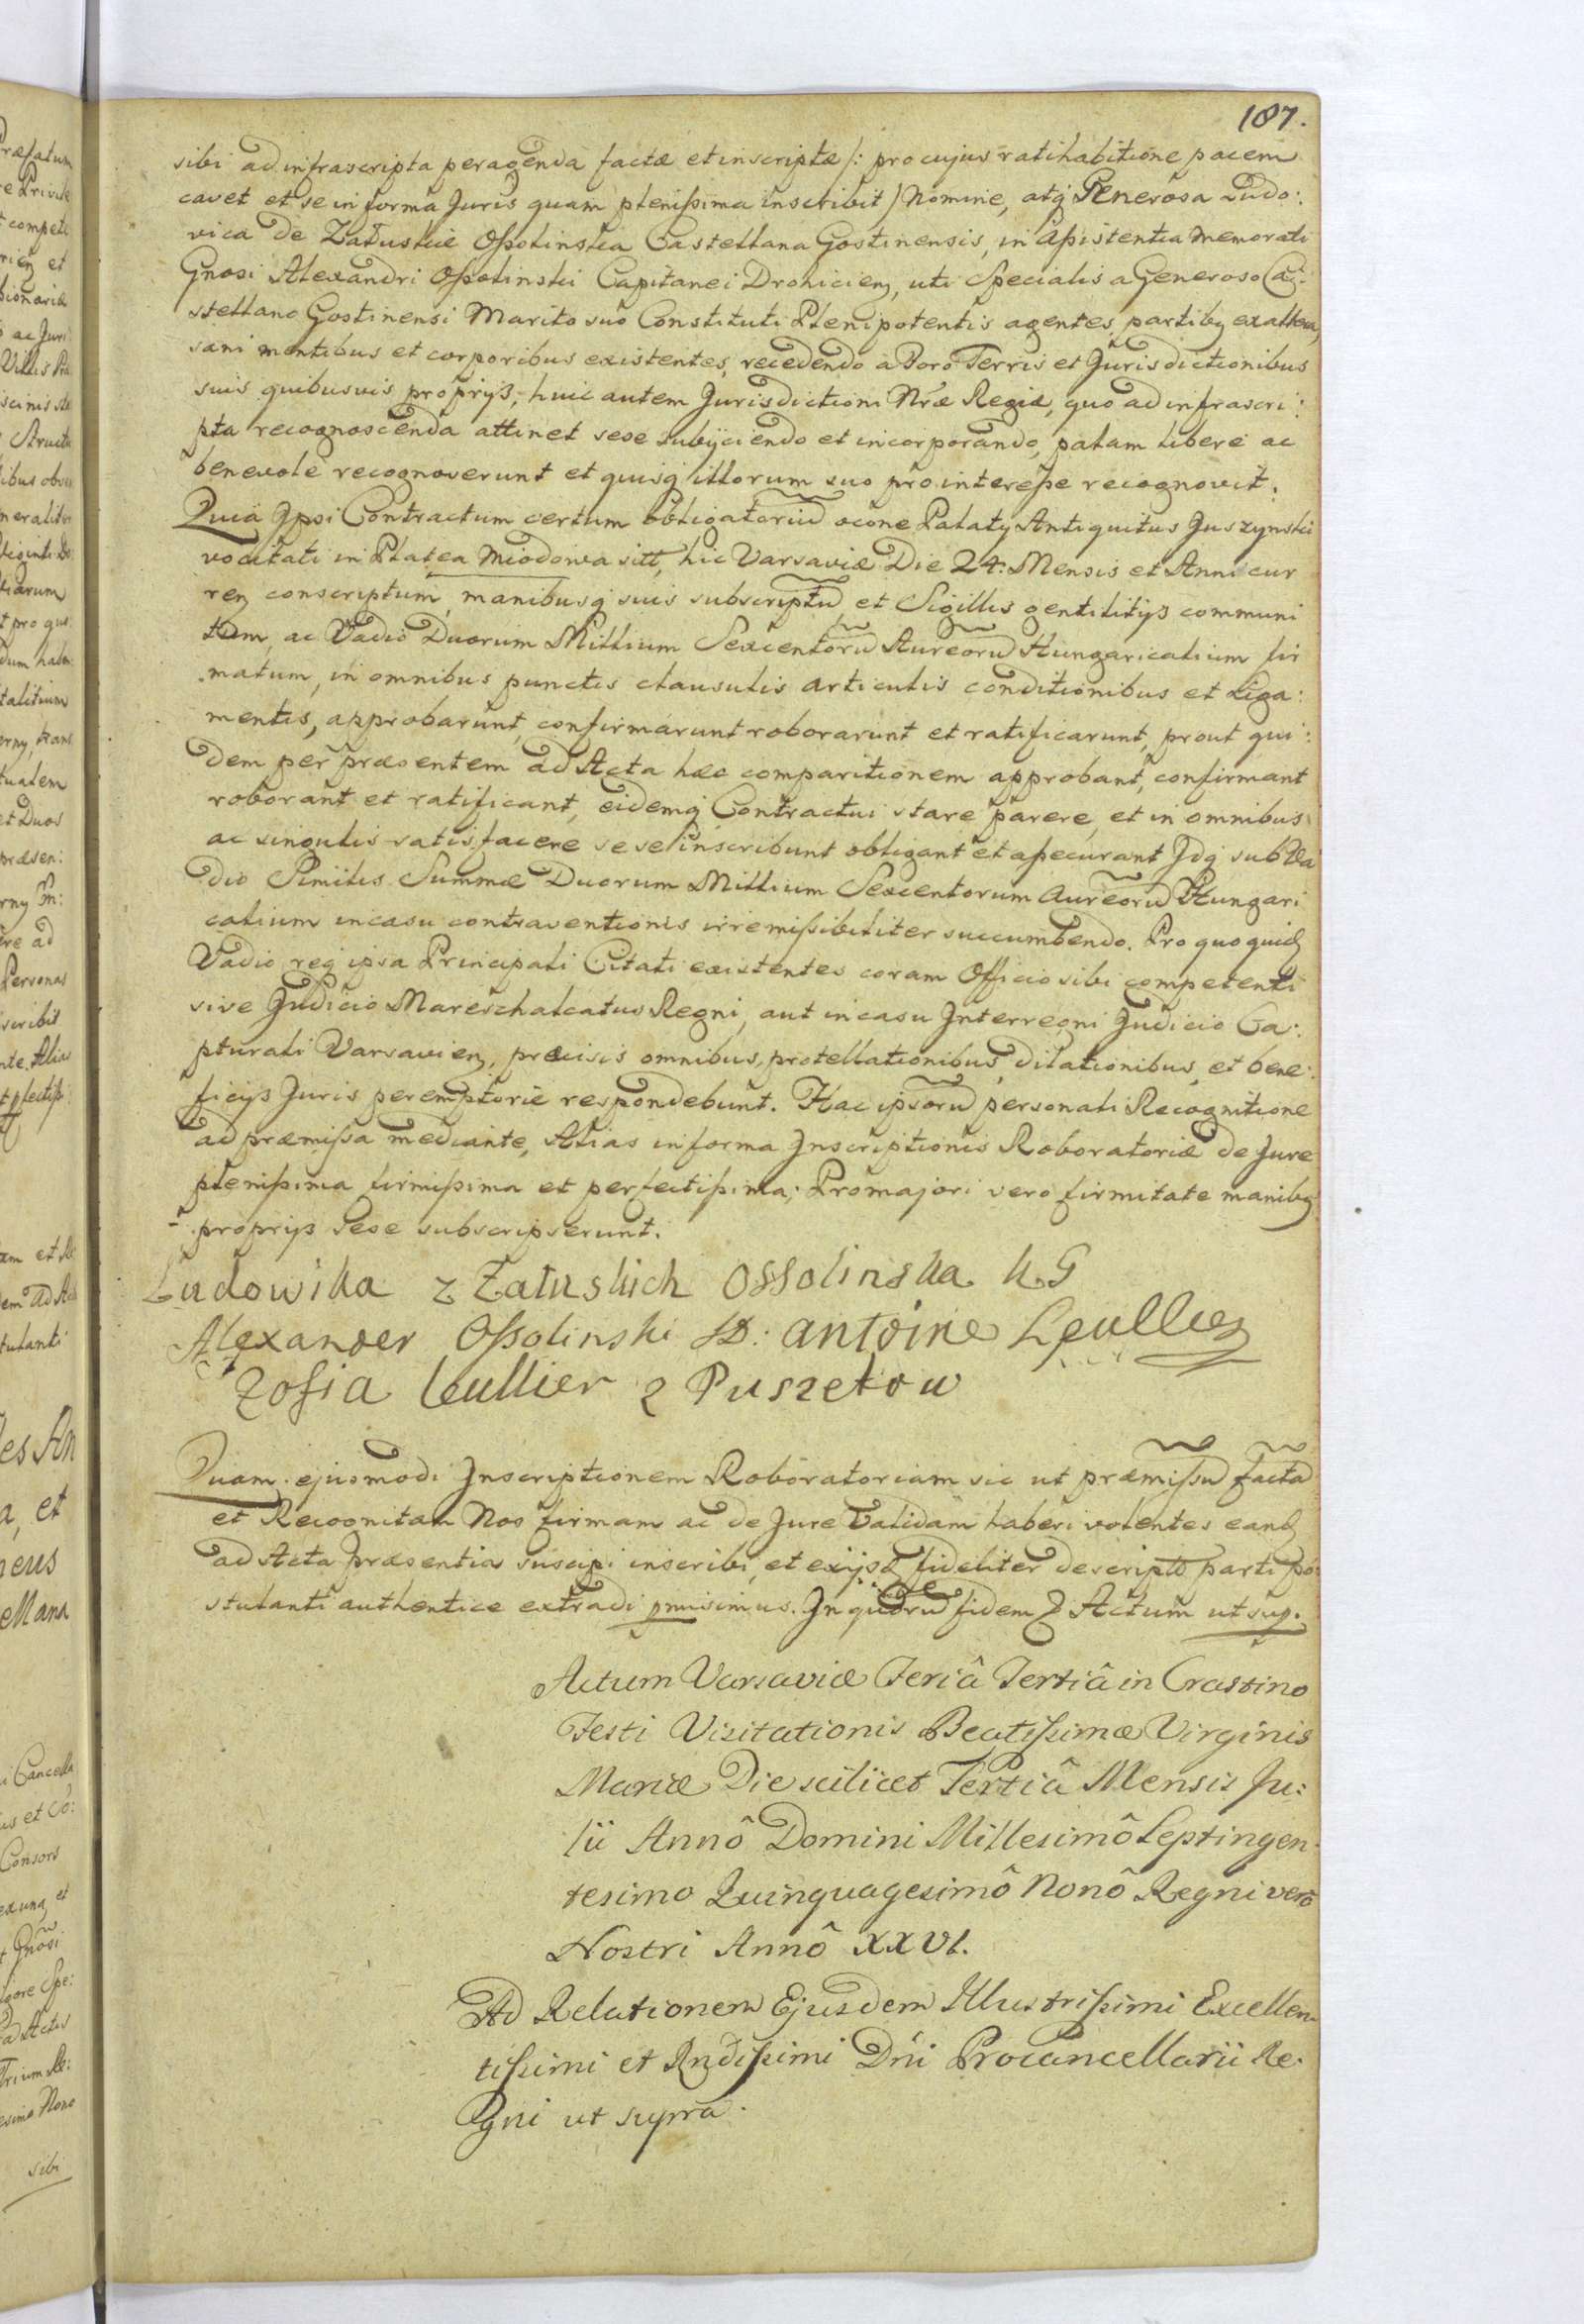 107.
sibi ad infrascripta peragenda factæ et inscriptæ /: pro cujus ratihabitione pacem
cavet et se in forma Juris quam plenissima inscribit / Nomine, atq Generosa Ludo:
vica de Załuskie Ossolinska Castellana Gostinensis, in Assistentia memorati
Gnosi Alexandri Ossolinski Capitanei Drohicien, uti Specialis a Generoso Ca:
stellano Gostinensi Marito suo Constituti Plenipotentis agentes, partibq ex altera,
sani mentibus et corporibus existentes, recedendo a Foro Terris et Jurisdictionibus
suis quibusvis proprijs, huic autem Jurisdictioni Nræ Regiæ, quo ad infrascri:
pta recognoscenda attinet sese subijciendo et incorporando, palam libere ac
benevole recognoverunt et quisq illorum suo pro interesse recognovit.
Quia Ipsi Contractum certum obligatoriu̅ ōcone Palaty Antiquitus Juszynski
vocitati in Platea Miodowa sitt, hic Varsaviæ Die 24. Mensis et Anni cur
ren conscriptum, manibusq suis subscriptu̅ et Sigillis gentilitijs communi
tum, ac Vadio Duorum Millium Sexcentoru̅ Aureoru̅ Hungaricalium fir
matum, in omnibus punctis clausulis articulis conditionibus et Liga:
mentis, approbarunt, confirmarunt roborarunt et ratificarunt, prout qui:
dem per præsentem ad Acta hæc comparitionem approbant, confirmant
roborant et ratificant, eidemq Contractui stare parere, et in omnibus
ac singulis satisfacere sese inscribunt obligant et assecurant Idq sub Va
dio Similis Summæ Duorum Millium Sexcentorum Aureoru̅ Hungari
calium in casu contraventionis irremissibiliter succumbendo. Pro quo quidẽ
Vadio req ipsa Principali Citati existentes coram Officio sibi competenti
sive Judicio Mareschalcatus Regni, aut in casu Interregni Judicio Ca:
pturali Varsavien, præcisis omnibus, protellationibus, dilationibus, et bene:
ficijs Juris peremptorie respondebunt. Hac ipsoru̅ personali Recognitione
ad præmissa mediante, Alias in forma Inscriptionis Roboratoriæ de Jure
plenissima firmissima et perfectissima; Pro majori vero firmitate manibq
proprijs sese subscripserunt.
Ludowika z Załuskich Ossolinska K. G
Alexander Ossolinski SD: antoine Leullier
Zofia leullier z Puszetow
Quam ejusmodi Inscriptionem Roboratoriam sic ut præmissu̅ facta̅
et Recognitam Nos firmam ac de Jure Validam haberi volentes eandẽ
ad Acta præsentia suscipi inscribi, et ex ijsd fideliter descripta̅ parti po
stulanti authentice extradi pmisimus. In quoru̅ fidem & Actum ut sup.
Actum Varsaviæ Feriâ Tertiâ in Crastino
Festi Visitationis Beatissimæ Virginis
Mariæ Die scilicet Tertiâ Mensis Ju:
lii Annô Domini Millesimô Septingen
tesimo Quinquagesimô Nonô Regni vero
Nostri Annô XXVI.
Ad Relationem Ejusdem Illustrissimi Excellen
tissimi et Rndissimi Dni Procancellarii Re
gni ut supra.